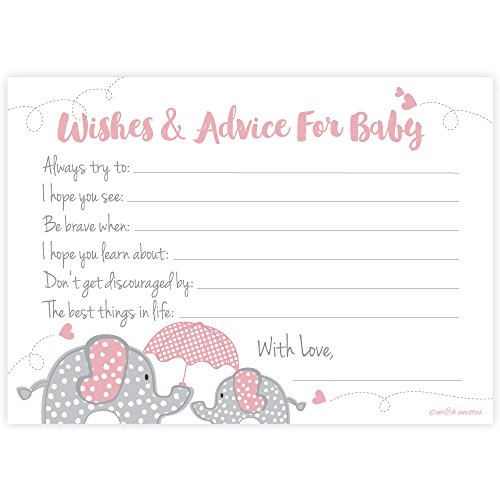 Wishes & Advice For Baby
Always try to:
I hope you see:
Be brave when:
I hope you learn about:
Don't get discouraged by:
The best things in life:
With Love,
m&h invites